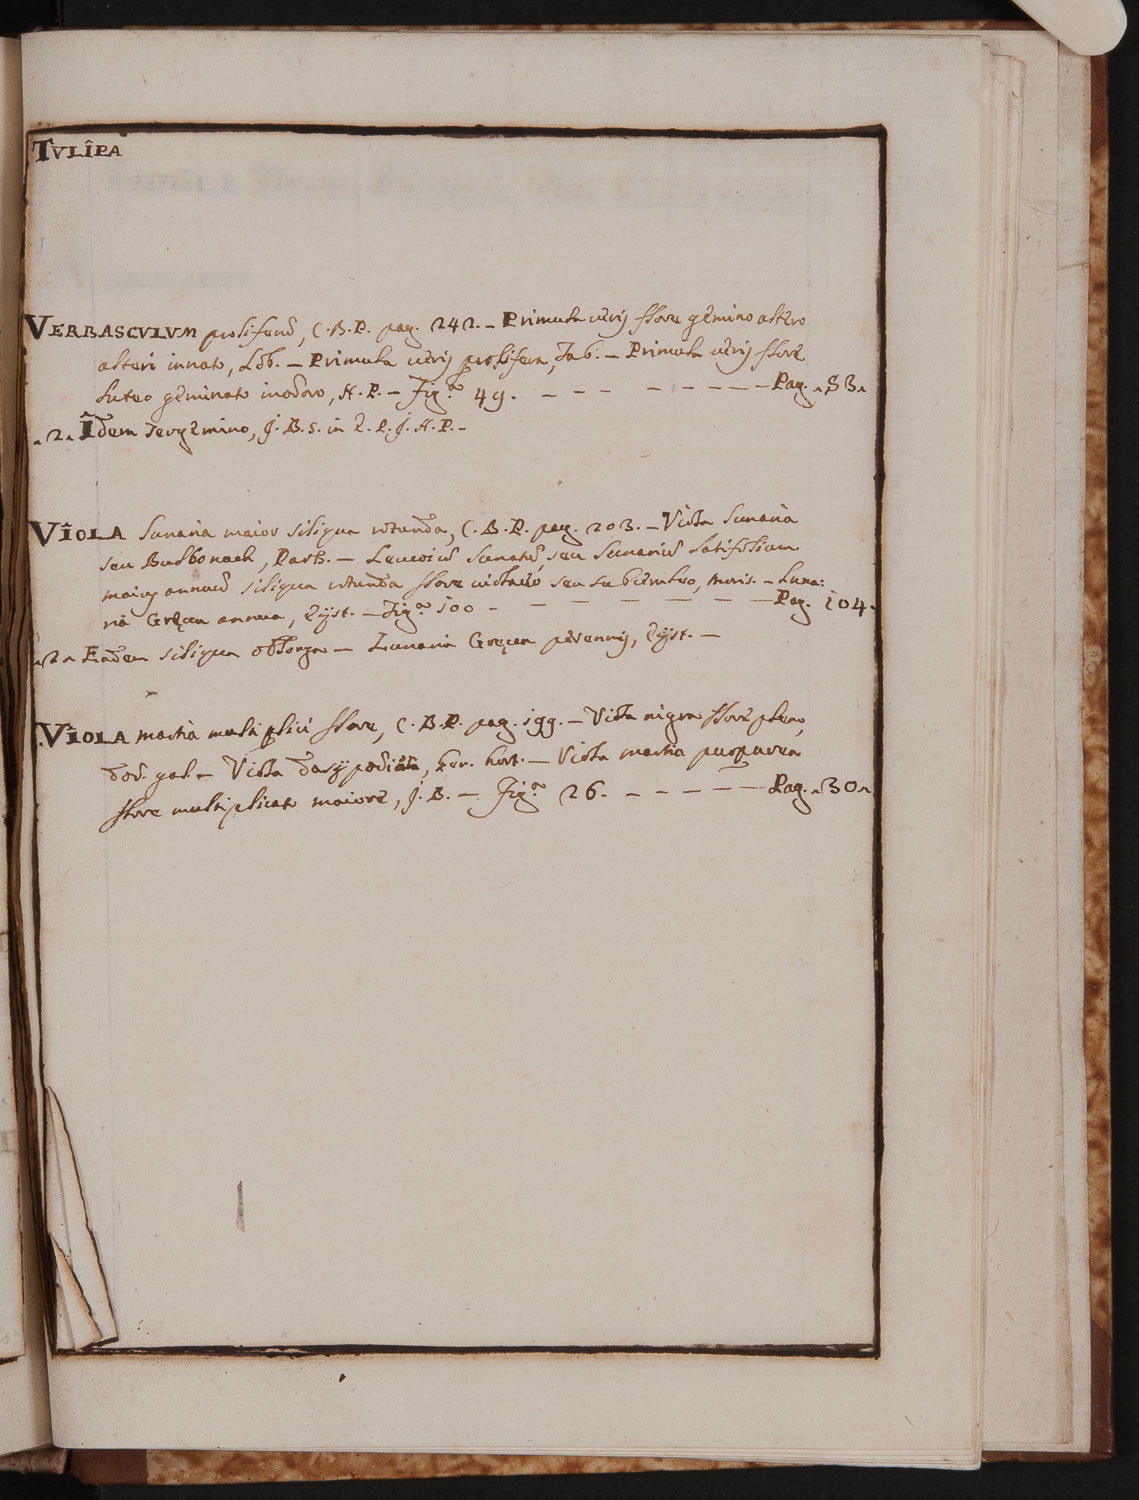 TVLÎPA
VERBASCVLVM proliferũ, C.B.P. pag. 242. – Primula ueris fflore gemino altero
alteri innato, Lob. – Primula ueris prolifera, Tab. – Primula ueris fflore
luteo geminato inodoro, H.P. – Fig.ª 49. – – – – – – – – – Pag. 53
2 Îdem tergemino, J.B.S. in E.P.J.H.P. –
VÎOLA lunaria maior siliqua rotunda, C.B.P. pag. 203. – Viola Lunaria
seu Bulbonach, Park. – Leucoiũ lunatũ, seu lunariũ latifolium
maius annuũ siliqua rotunda fflore uiolaceo seu subcæruleo, moris. – Luna:
ria Gręca annua, Eyst. – Fig.ª 100 – – – – – – – – Pag. 104.
2 Eadem siliqua oblonga – Lunaria Gręca perennis, Eyst. –
VÎOLA martia multiplici fflore, C.B.P. pag. 199. – Viola nigra fflore pleno,
dod. gal – Viola dasypodia, ger. hort. – Viola martia purpurea
fflore multiplicato maiore, J.B. – Fig.ª 26. – – – – – Pag. 30